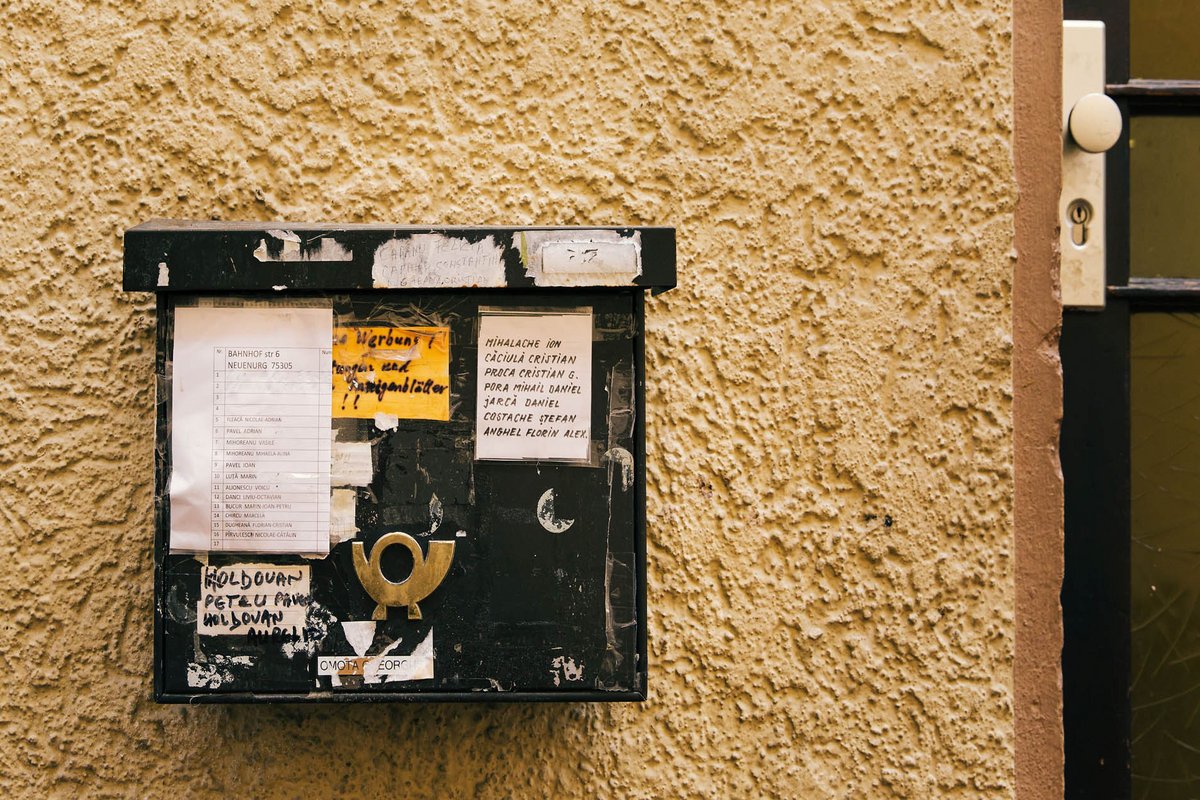 CONSTANTIN
Nr.
BAHNHOF str 6
NEUENURG 75305
1
2
3
4
5 FLEACĂ NICOLAE-ADRIAN
6 PAVEL ADRIAN
7 MIHOREANU VASILE
8 MIHOREANU MIHAELA-ALINA
9 PAVEL IOAN
10 LUTĂ MARIN
11 ALIONESCU VOICU
12 DANCI LIVIU-OCTAVIAN
13 BUCUR MARIN-IOAN-PETRU
14 CHIRCU MARCELA
15 DUGHEANĂ FLORIAN-CRISTIAN
16 PÎRVULESCU NICOLAE-CĂTĂLIN
17
Werbung !
und
Anzeigenblätter
!!
MIHALACHE ION
CĂCIULĂ CRISTIAN
PROCA CRISTIAN G.
PORA MIHAIL DANIEL
JARCĂ DANIEL
COSTACHE ȘTEFAN
ANGHEL FLORIN ALEX.
MOLDOVAN
PETRU PAVEL
MOLDOVAN
OMOTA